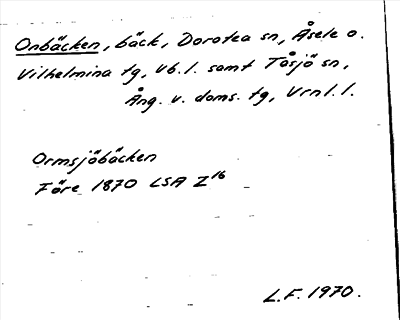 Onbäcken, bäck, Dorotea sn, Åsele o.
Vilhelmina tg, Vb.l. samt Tåsjö sn,
Ång. v. doms. tg, Vrnl.l.
Ormsjöbäcken
Före 1870 LSA Z16
L.F. 1970.